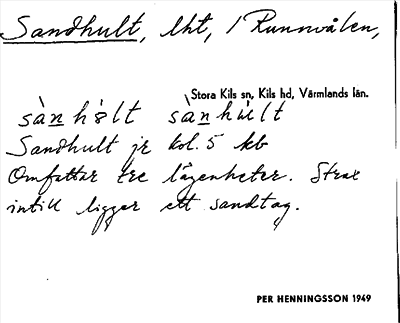 Sandhult, lht, i Runnvålen,
Stora Kils sn, Kils hd, Värmlands län.
sànhòlt sànhùlt
Sandhult jr kol. 5 kb
Omfattar tre lägenheter. Strax
intill ligger ett sandtag.
PER HENNINGSSON 1949